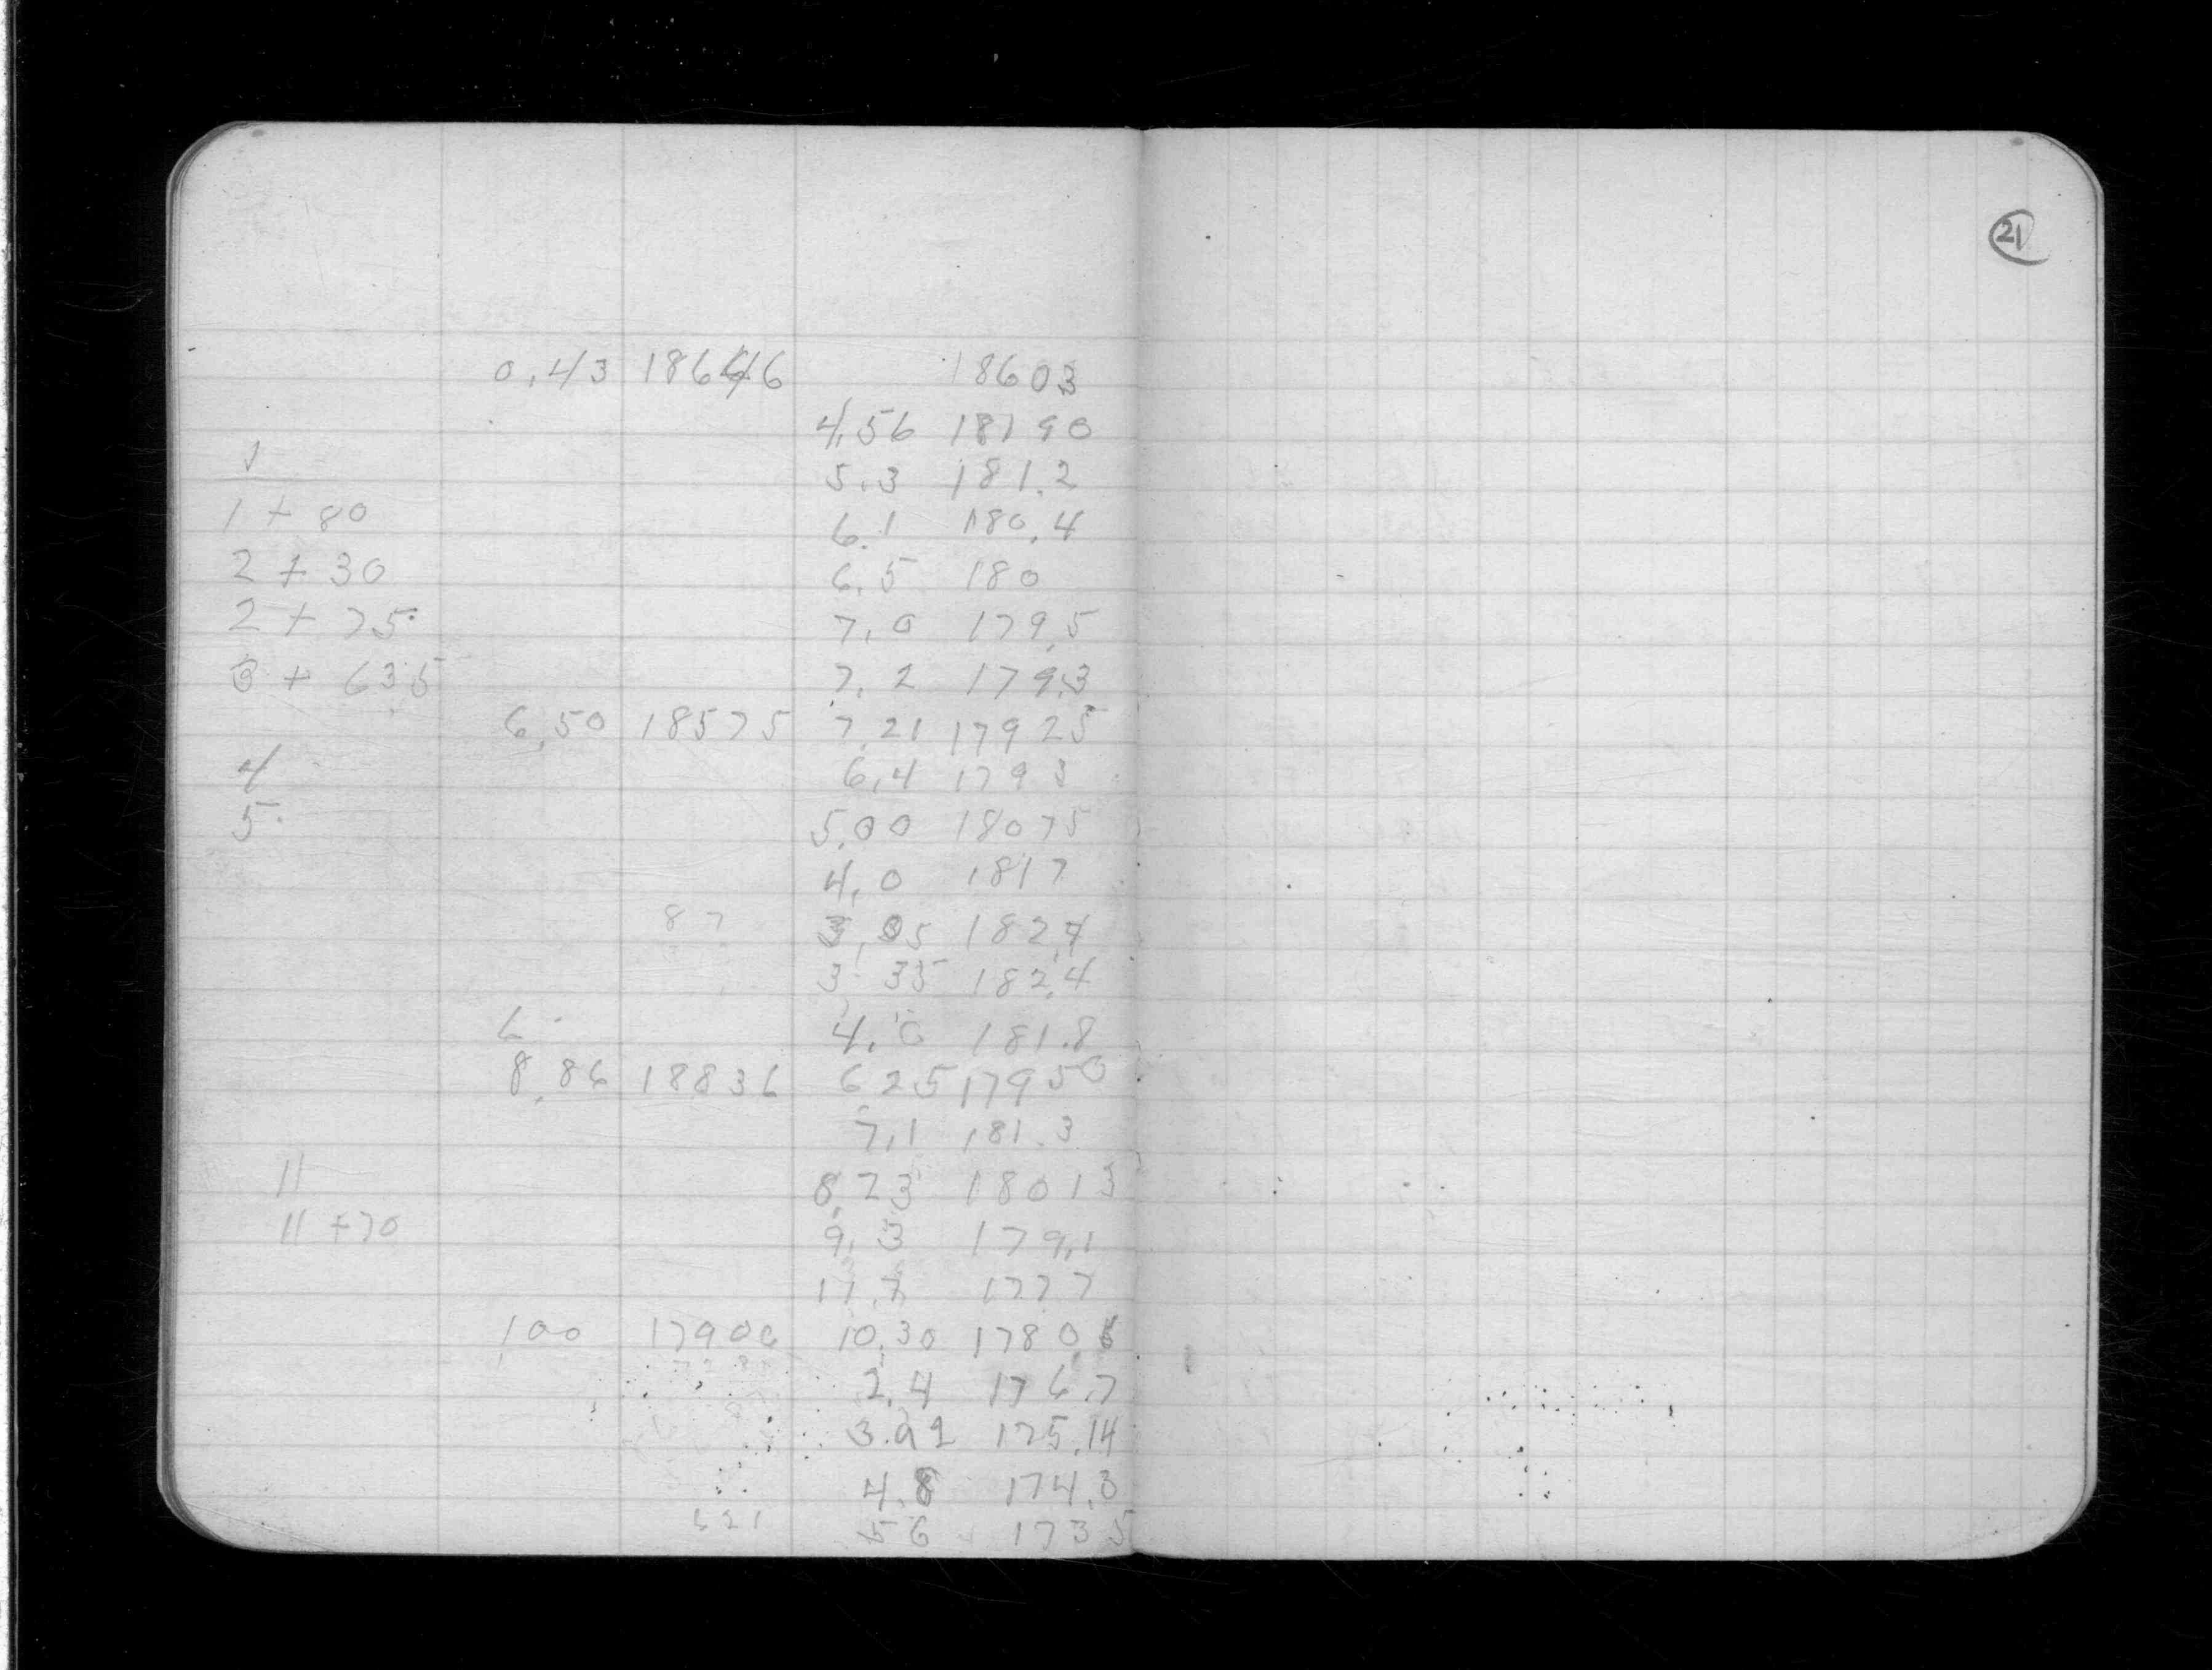 21
0,43 18646 18603
4,56 18190
1 5.3 181.2
1 + 80 6.1 180.4
2 + 30 6.5 180
2 + 75 7,0 179,5
3 + 63.5 7.2 179.3
6,50 18575 7,21 17925
4 6,4 1793
5 5,00 18075
4,0 1817
87 3,05 182,7
3 35 182,4
6 4.0 181.8
8,86 18836 6,25 17950
7,1 181.3
11 8,23 18013
11 + 70 9,3 179,1
11.7 1777
1,00 17906 10,30 1780,6
2,4 176.7
3.92 175.14
4.8 174.3
621 56 1735